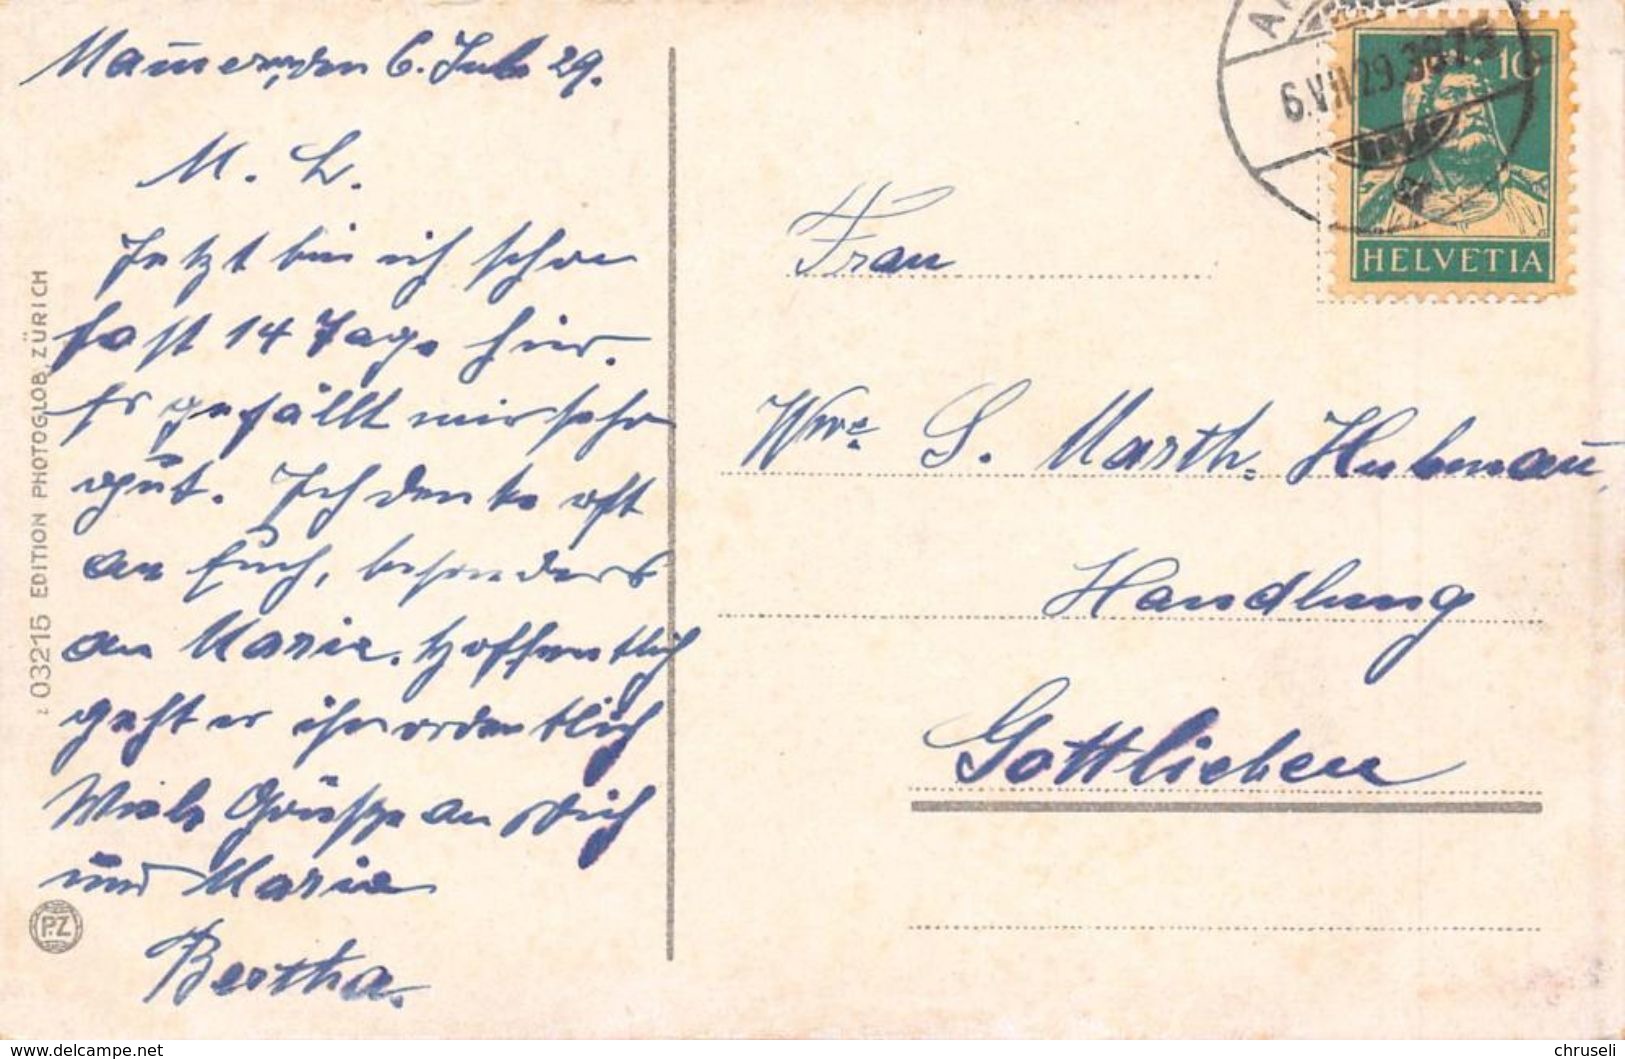 Mauren, den 6. Juli 29.
M. L.
Jetzt bin ich schon
fast 14 Tage hier.
Es gefällt mir sehr
gut. Ich denke oft
an Euch, besonders
an Marie. Hoffentlich
geht es ihr ordentlich
Viele Grüsse an Dich
und Marie
Bertha.
z 03215 EDITION PHOTOGLOB, ZÜRICH
P.Z
6.VII.29.
10
HELVETIA
Frau
Wwe S. Marth-Hubmann,
Handlung
Gottlieben
delcampe.net
chruseli